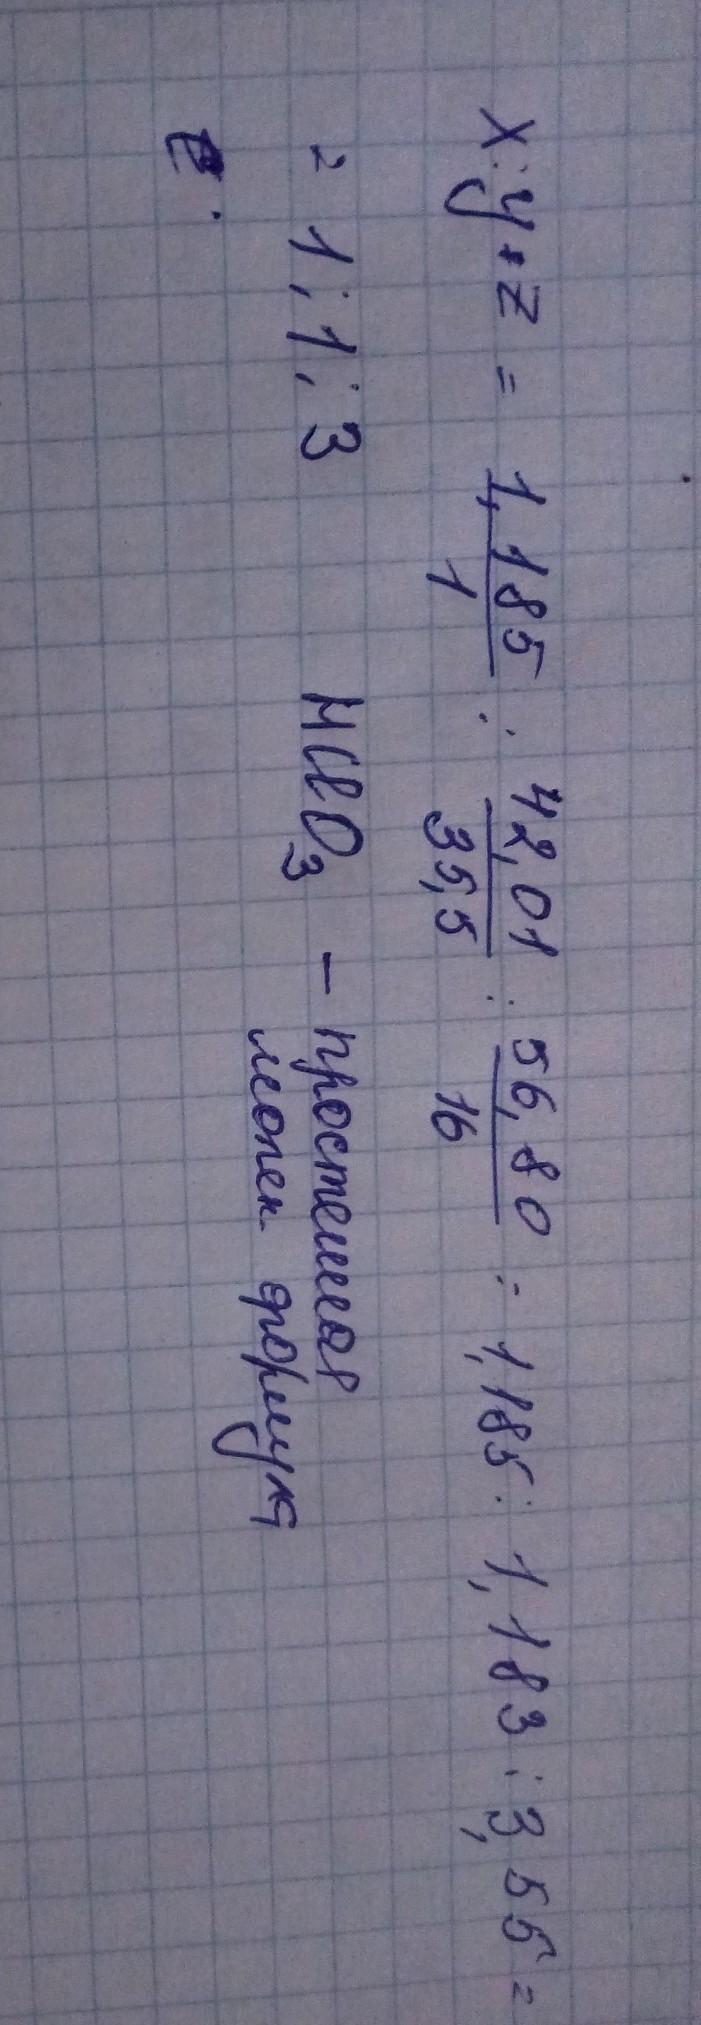 x : y : z = 1,185/1 : 42,01/35,5 : 56,80/16 : 1,185 : 1,183 : 3,55 =
= 1 : 1 : 3 HClO₃ – простейшая
молек. формула